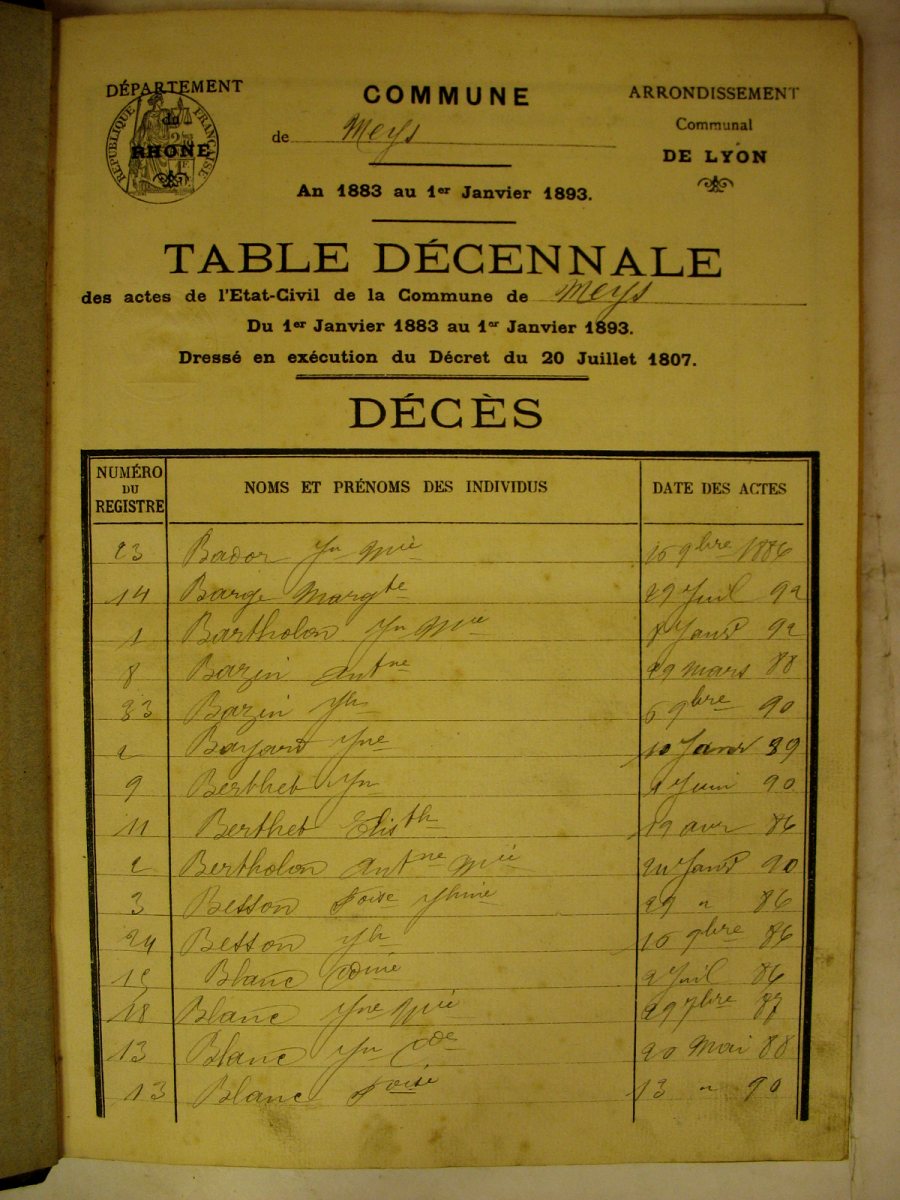 DÉPARTEMENT
du
RHONE
RÉPUBLIQUE FRANÇAISE
COMMUNE
de Meys
ARRONDISSEMENT
Communal
DE LYON
An 1883 au 1er Janvier 1893.
TABLE DÉCENNALE
des actes de l'Etat-Civil de la Commune de Meys
Du 1er Janvier 1883 au 1er Janvier 1893.
Dressé en exécution du Décret du 20 Juillet 1807.
DÉCÈS
NUMÉRO DU REGISTRE NOMS ET PRÉNOMS DES INDIVIDUS DATE DES ACTES
23 Bador Jn Mie 16 9bre 1886
14 Barge Margte 29 Juil 92
1 Bartholon Jn Mie 8 Janv 92
8 Bazin Antne 29 mars 88
33 Bazin Jh 6 9bre 90
2 Bayard Jne 10 Janv 89
9 Berthet Jn Juin 90
11 Berthet Elisth 19 avr 86
2 Bertholon Antne Mie Janv 90
3 Besson Foise 29 " 86
24 Besson Jh 16 9bre 86
15 Blanc 2 Juil 86
18 Blanc Jne Mie 29 7bre 87
13 Blanc Jn 20 Mai 88
13 Blanc Foise 13 " 90